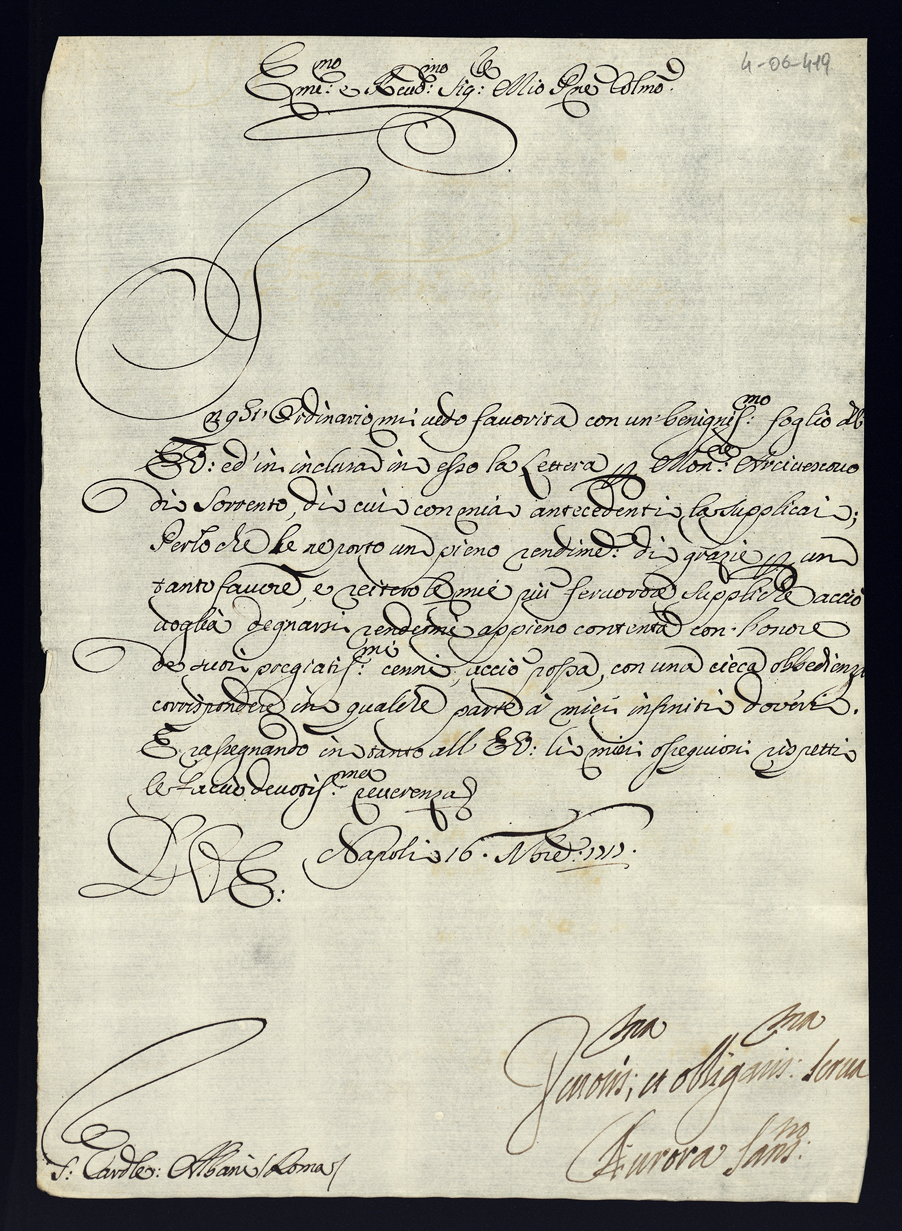 4-06-419
Em:mo e Reud:mo Sig:le Mio Pne Colmo
In qst' Ordinario mi vedo favorita con un' benignis:mo foglio dll'
EV: ed' in inclusa in esso la Lettera Mon:re Arcivescovo
di Sorrento, di cui con mia antecedenti la supplicai;
Perloche le ne porto un pieno rendime: di grazie un
tanto favore, e reitero le mie più fervorose suppliche acciò
voglia degnarsi rendermi appieno contenta con l'honore
de suoi pregiatis:mi cenni, acciò possa, con una cieca obbedienza
corrispondere in qualche parte à miei infiniti doveri.
E rassegnando in tanto all' EV: li miei ossequiosi rispetti
le faccio devotis:ma reverenza
D V E: Napoli 16. Nbre: 1717.
Deuotis:ma, et obligatis:ma serua
Aurora San:no
S: Cardle: Albani (Roma)